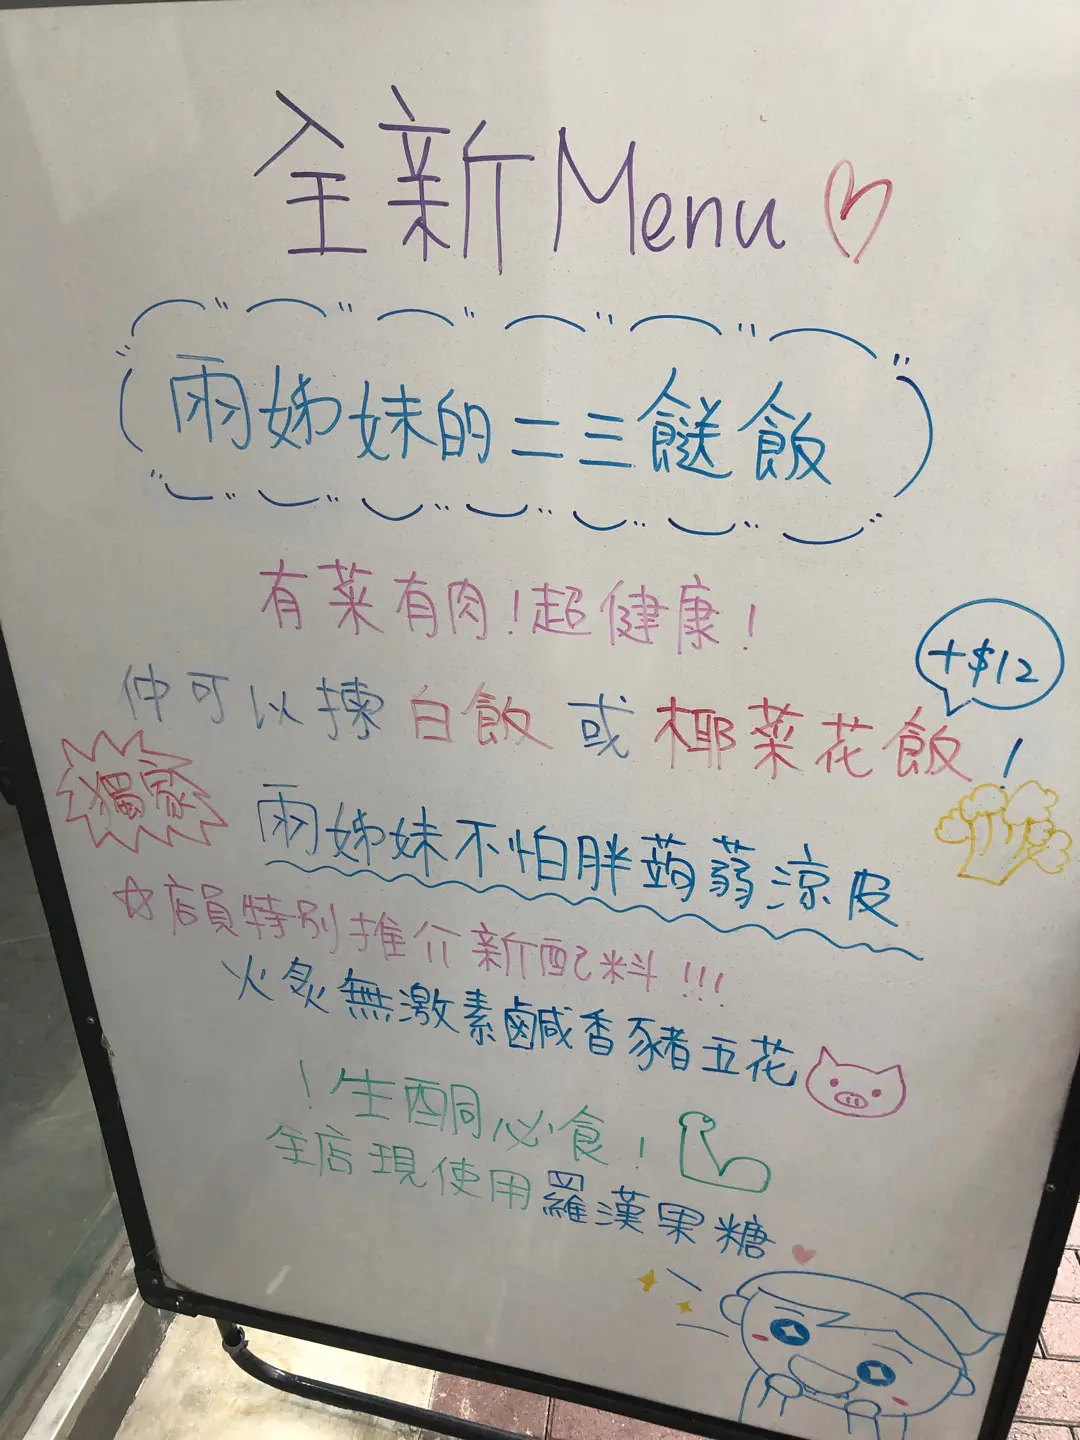 全新Menu
雨姊妹的二三餸飯
有菜有肉!超健康!
+$12
仲可以揀白飯或椰菜花飯!
獨家
雨姊妹不怕胖蒟蒻涼皮
☆店員特別推介新配料!!!
火炙無激素鹹香豬五花
!生酮必食!
全店現使用羅漢果糖